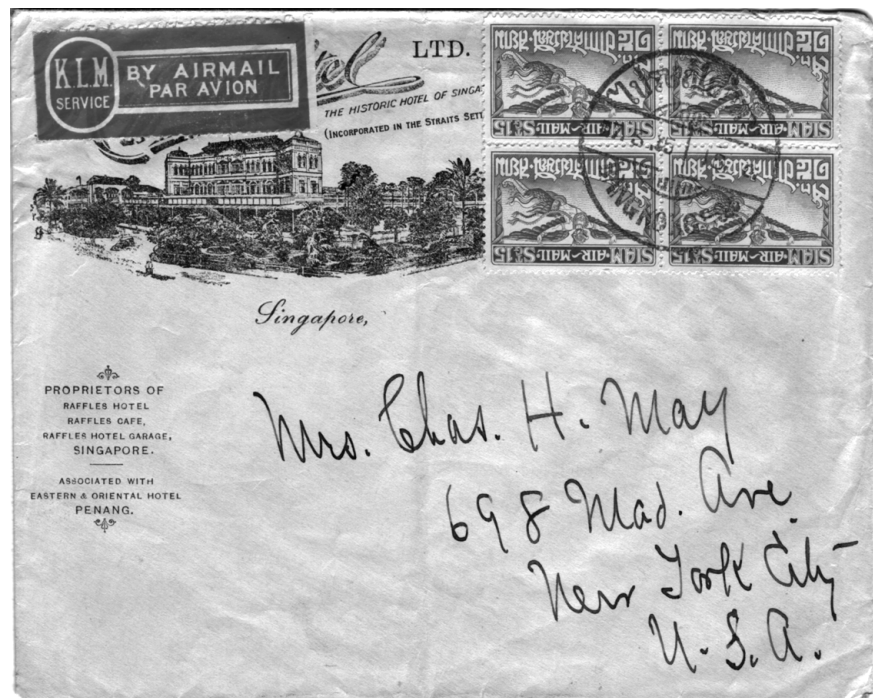 K.L.M
SERVICE
BY AIRMAIL
PAR AVION
LTD.
THE HISTORIC HOTEL OF
(INCORPORATED IN THE STRAITS
SIAM AIR-MAIL 15
SIAM AIR-MAIL 15
SIAM AIR-MAIL 15
SIAM AIR-MAIL 15
Singapore,
PROPRIETORS OF
RAFFLES HOTEL
RAFFLES CAFE,
RAFFLES HOTEL GARAGE,
SINGAPORE.
ASSOCIATED WITH
EASTERN & ORIENTAL HOTEL
PENANG.
Mrs. Chas. H. May
698 Mad. Ave.
New York City
U.S.A.